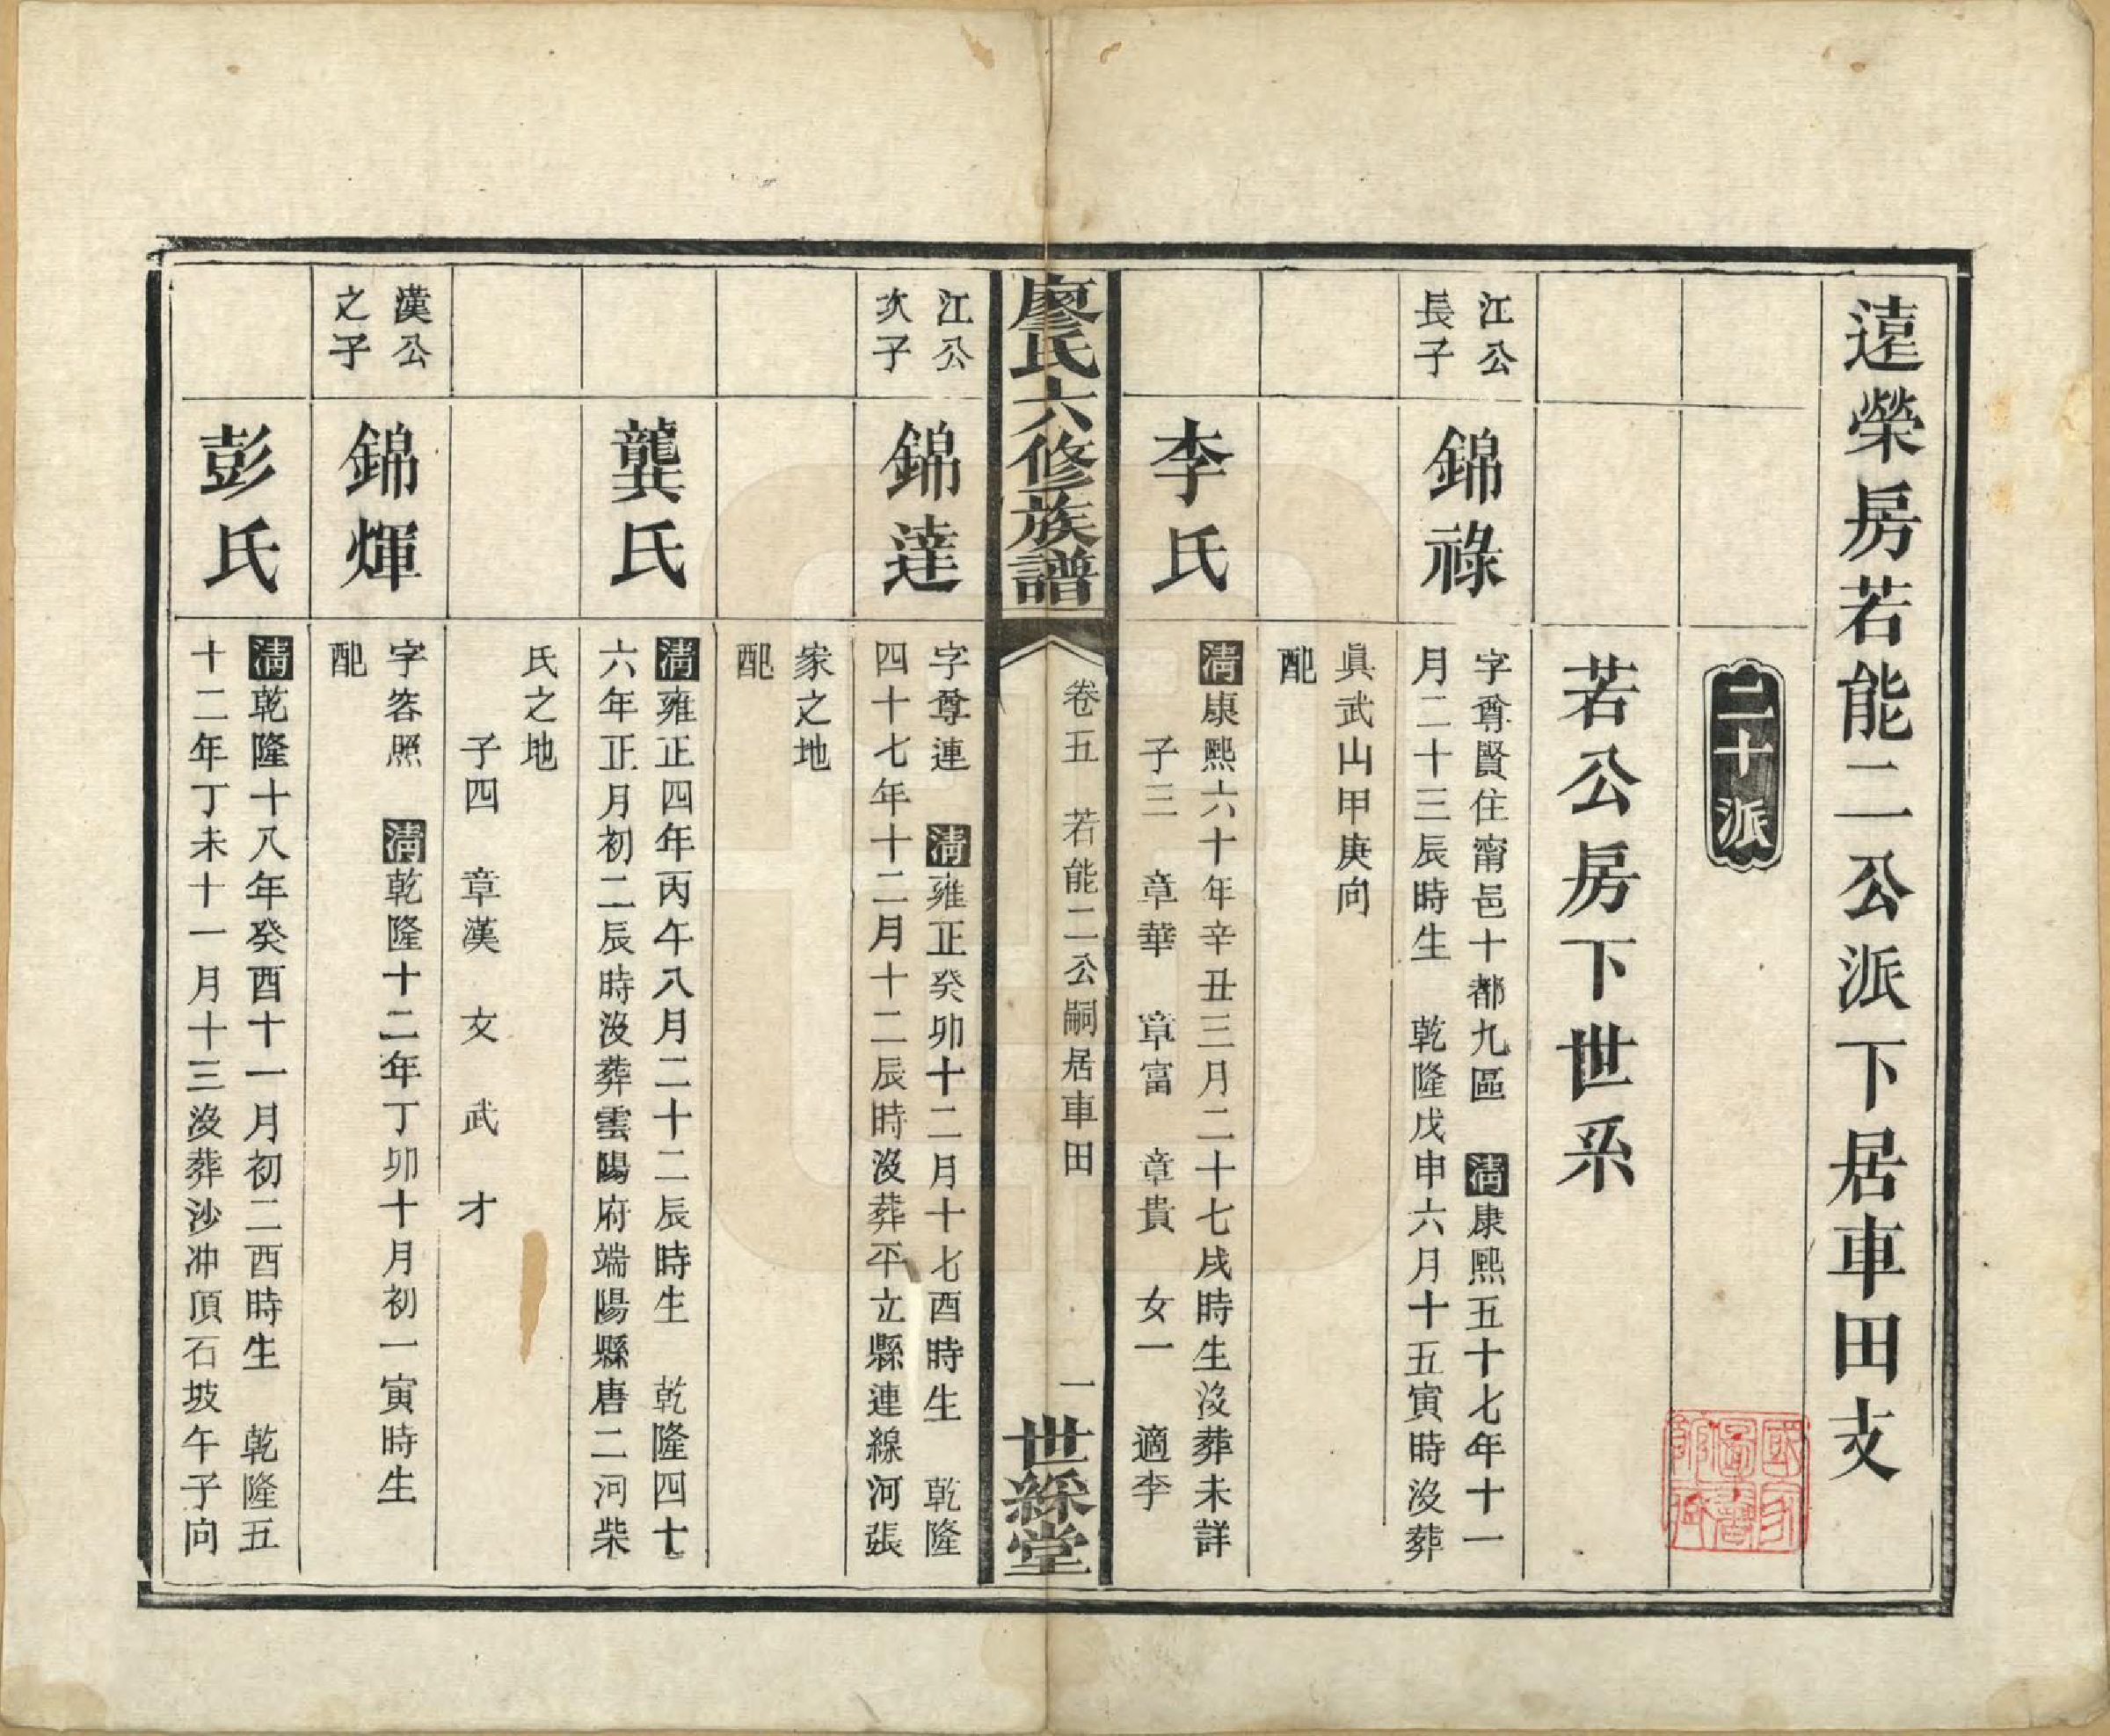 遠榮房若能二公派下居車田支
二十派
若公房下世系
江公
長子
錦祿
字尊賢住甯邑十都九區　清康熙五十七年十一
月二十三辰時生　乾隆戊申六月十五寅時沒葬
眞武山甲庚向
配
李氏
清康熙六十年辛丑三月二十七戌時生沒葬未詳
子三　章華　章富　章貴　女一　適李
廖氏六修族譜
卷五　若能二公嗣居車田
一
世綵堂
江公
次子
錦達
字尊連　清雍正癸卯十二月十七酉時生　乾隆
四十七年十二月十二辰時沒葬平立縣連線河張
家之地
配
龔氏
清雍正四年丙午八月二十二辰時生　乾隆四十
六年正月初二辰時沒葬雲陽府端陽縣唐二河柴
氏之地
子四　章漢　文　武　才
漢公
之子
錦煇
字容照　清乾隆十二年丁卯十月初一寅時生
配
彭氏
清乾隆十八年癸酉十一月初二酉時生　乾隆五
十二年丁未十一月十三沒葬沙冲頂石坡午子向